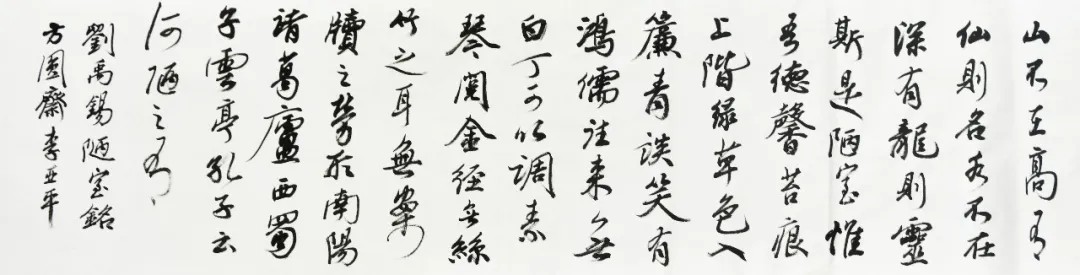 山不在高有
仙則名水不在
深有龍則靈
斯是陋室惟
吾德馨苔痕
上階緑草色入
簾青談笑有
鴻儒往来無
白丁可以調素
琴閱金經無絲
竹之耳無案
牘之勞形南陽
諸葛廬西蜀
子雲亭孔子云
何陋之有
劉禹錫陋室銘
方圓齋李亚平